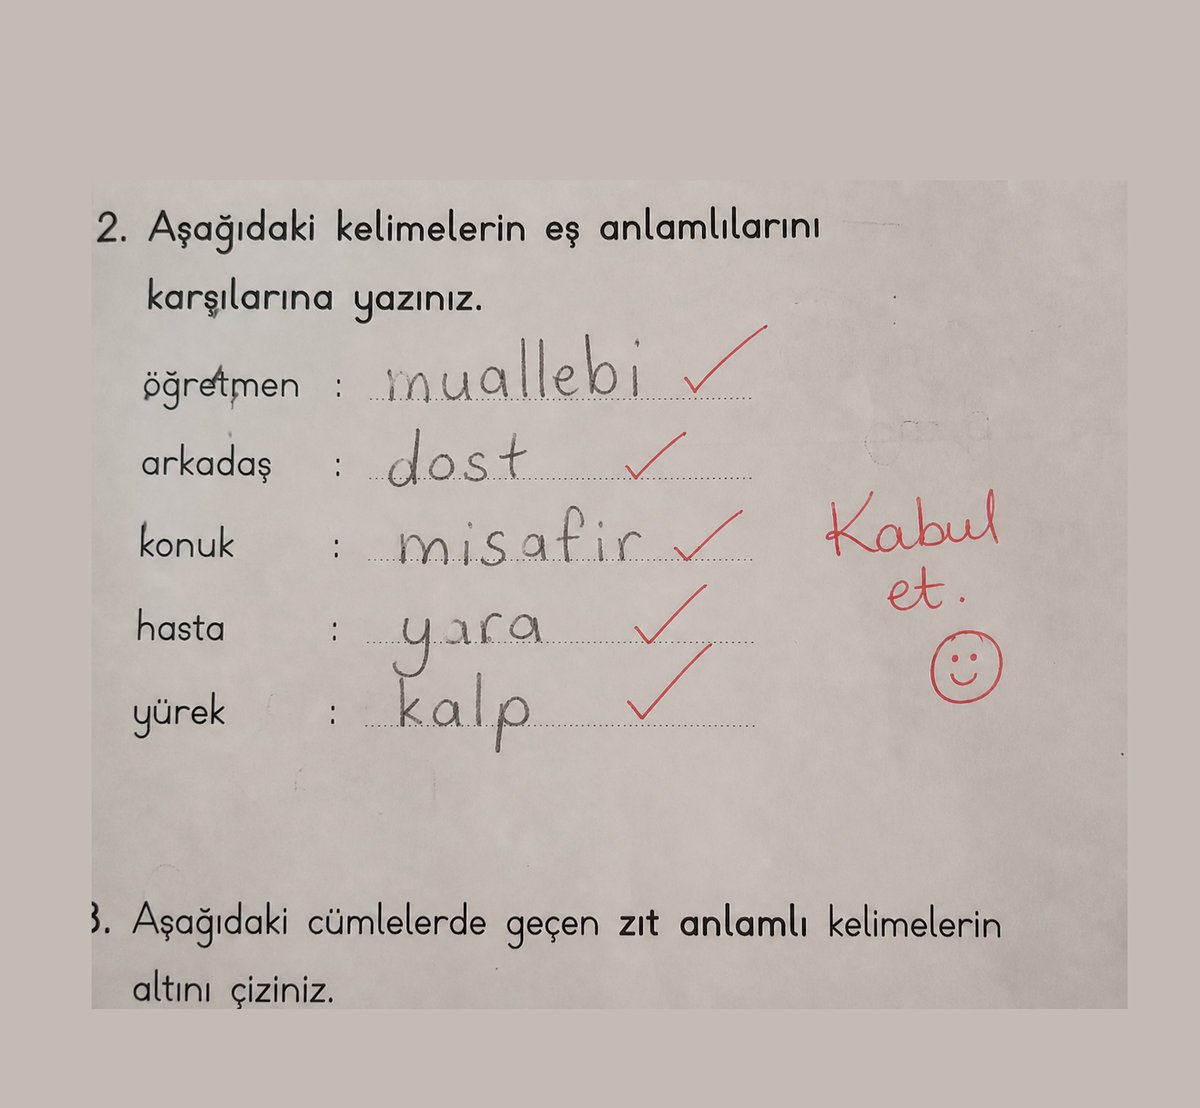 2. Aşağıdaki kelimelerin eş anlamlılarını
karşılarına yazınız.
öğretmen : muallebi
arkadaş : dost
konuk : misafir
hasta : yara
yürek : kalp
Kabul
et.
3. Aşağıdaki cümlelerde geçen zıt anlamlı kelimelerin
altını çiziniz.